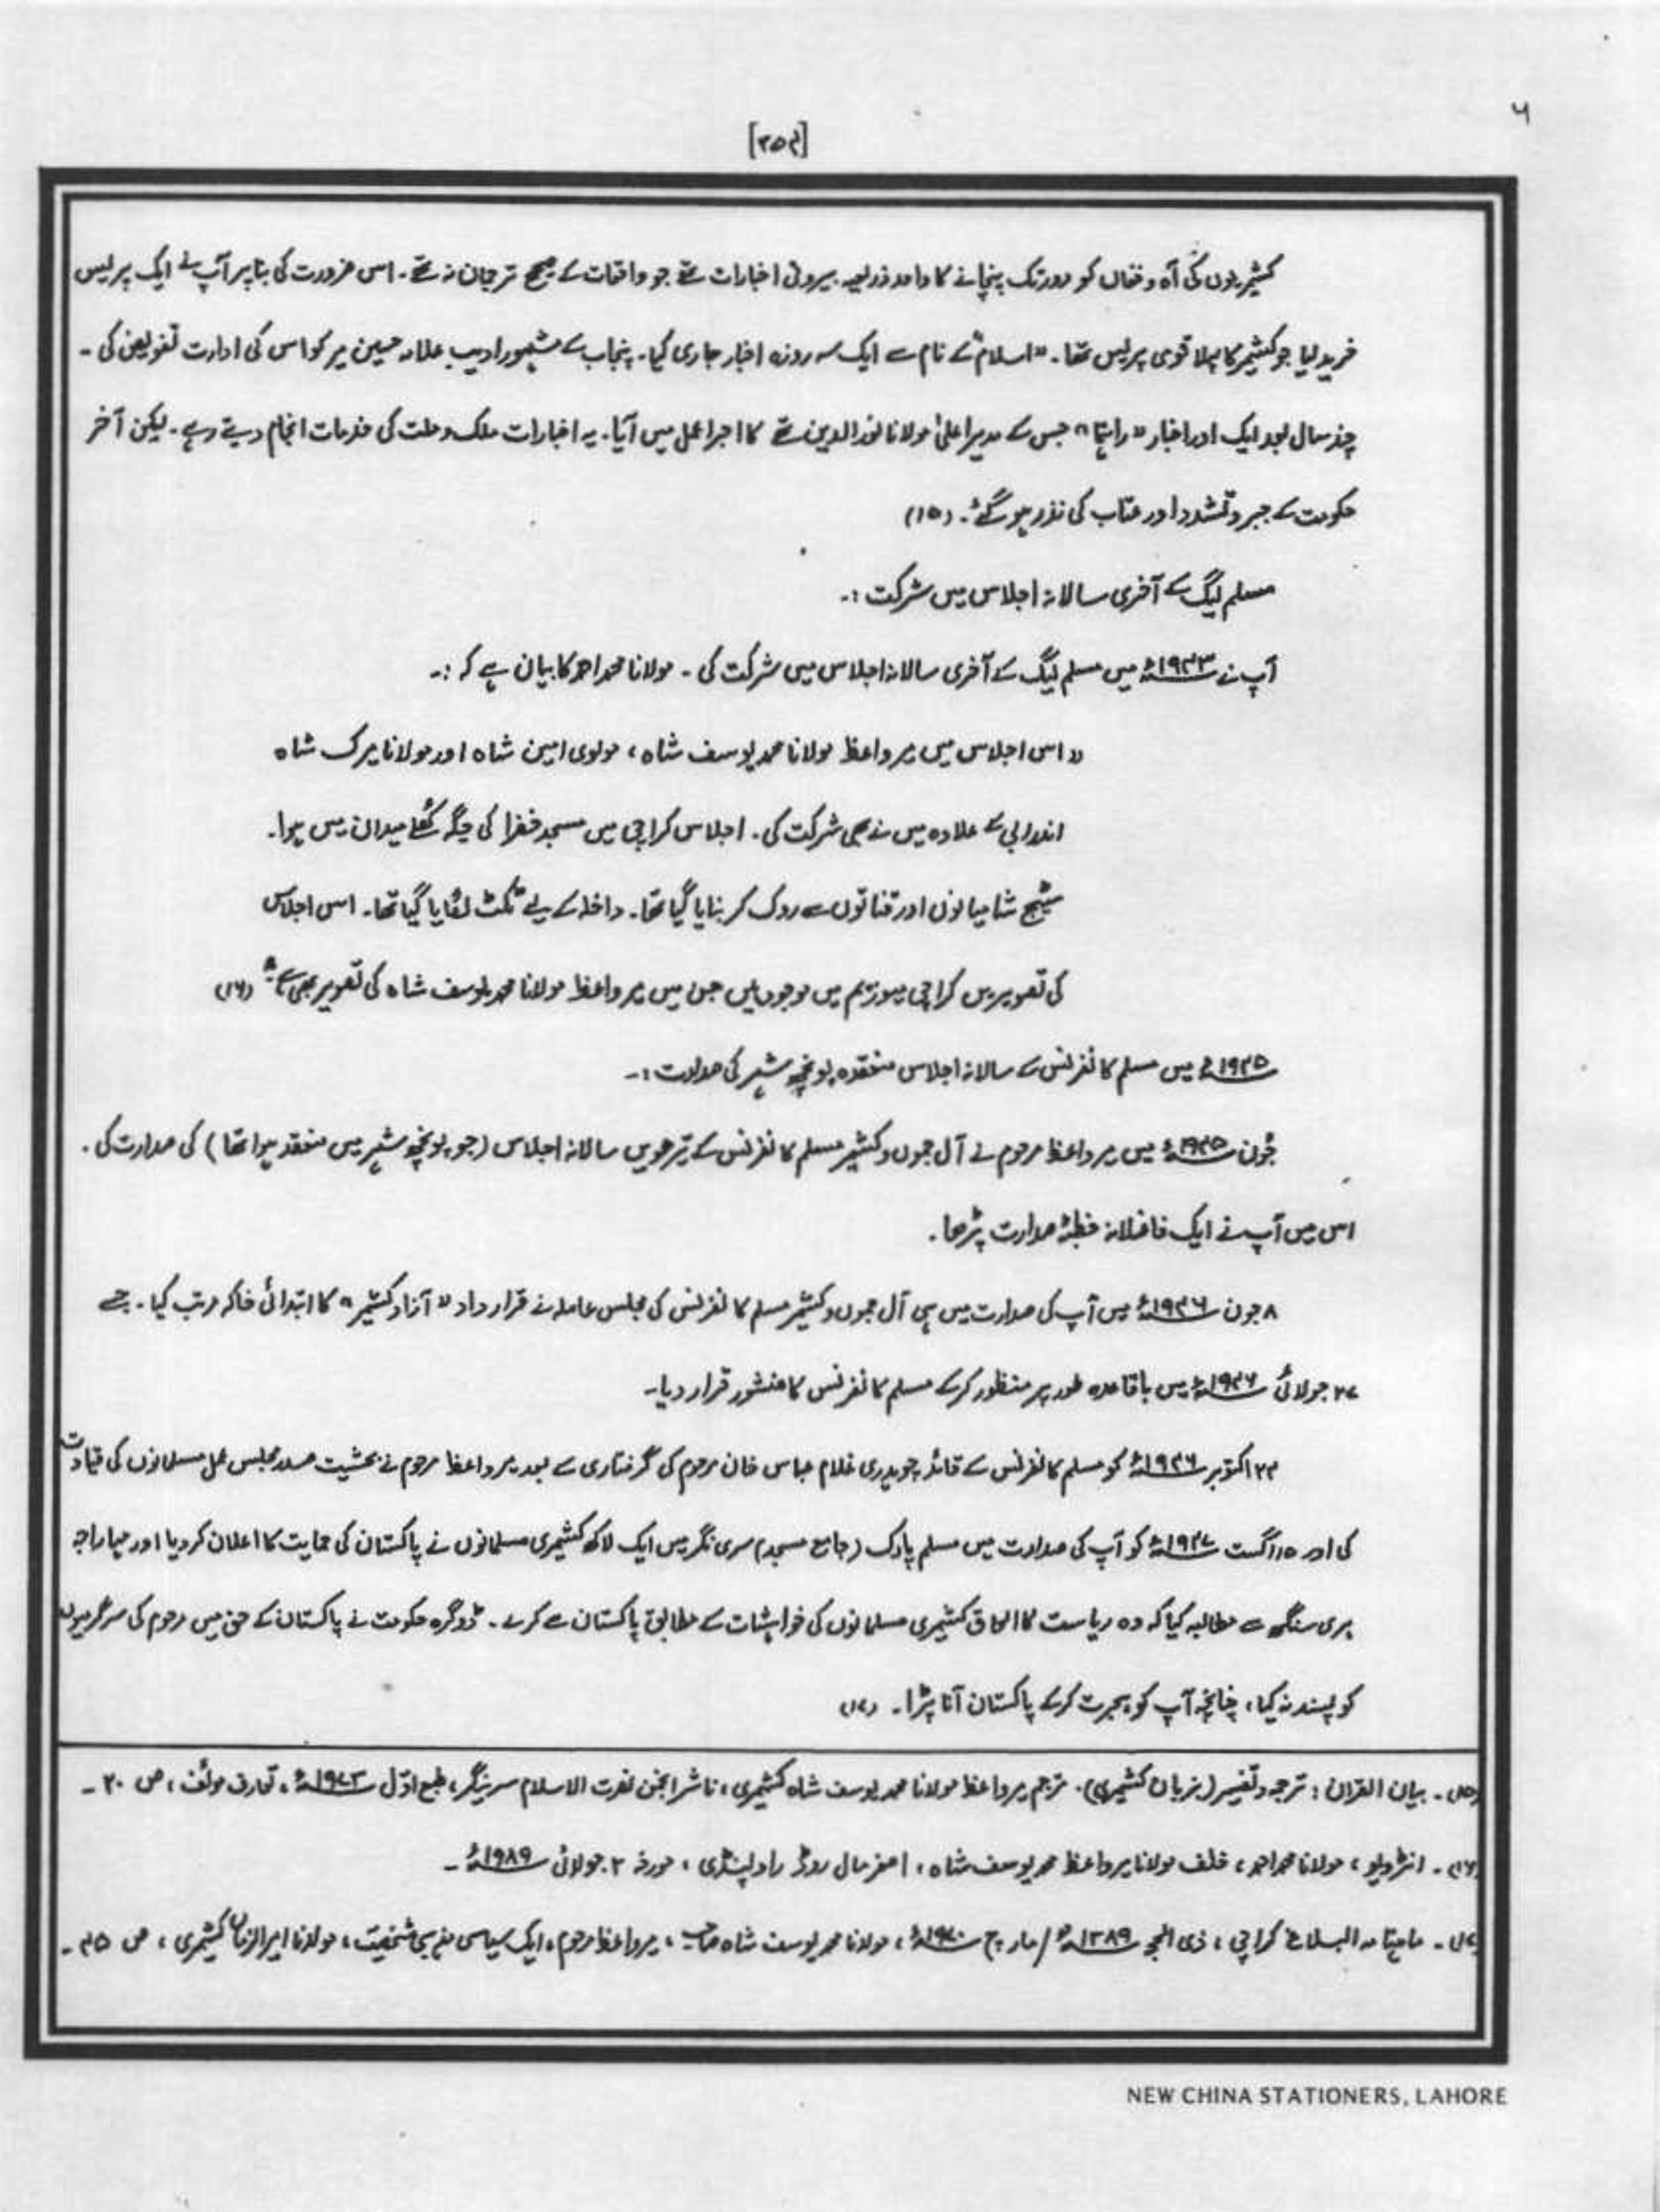 ۶
[۲۵۴]
کشیریوں کی آہ و فغاں کو دور تک پہنچانے کا واحد ذریعہ بیرونی اخبارات تھے جو واقعات کے صحیح ترجمان نہ تھے۔ اس ضرورت کی بنا پر آپ نے ایک پریس
خرید لیا جو کشمیر کا پہلا قومی پریس تھا۔ "اسلام" کے نام سے ایک سہ روزہ اخبار جاری کیا۔ پنجاب کے مشہور ادیب علامہ حسین میر کو اس کی ادارت تفویض کی۔
چند سال بعد ایک اور اخبار "راہنما" جس کے مدیر اعلیٰ مولانا نور الدین تھے کا اجرا عمل میں آیا۔ یہ اخبارات ملک و ملت کی خدمات انجام دیتے رہے۔ لیکن آخر
حکومت کے جبر و تشدد اور عتاب کی نذر ہو گئے۔ (۱۵)
مسلم لیگ کے آخری سالانہ اجلاس میں شرکت :۔
آپ نے ۱۹۴۳ء میں مسلم لیگ کے آخری سالانہ اجلاس میں شرکت کی۔ مولانا محمد احمد کا بیان ہے کہ :۔
"اس اجلاس میں میر واعظ مولانا محمد یوسف شاہ، مولوی امین شاہ اور مولانا میرک شاہ
اندرابی کے علاوہ میں نے بھی شرکت کی۔ اجلاس کراچی میں مسجد خضرا کی جگہ کھلے میدان میں ہوا۔
سٹیج شامیانوں اور قناتوں سے روک کر بنایا گیا تھا۔ داخلہ کے لیے ٹکٹ لگایا گیا تھا۔ اس اجلاس
کی تصویریں کراچی میوزیم میں موجود ہیں جن میں میر واعظ مولانا محمد یوسف شاہ کی تصویر بھی ہے" (۱۶)
۱۹۴۵ء میں مسلم کانفرنس کے سالانہ اجلاس منعقدہ پونچھ شہر کی صدارت :۔
جُون ۱۹۴۵ء میں میر واعظ مرحوم نے آل جموں و کشمیر مسلم کانفرنس کے تیرھویں سالانہ اجلاس (جو پونچھ شہر میں منعقد ہوا تھا) کی صدارت کی۔
اس میں آپ نے ایک فاضلانہ خطبۂ صدارت پڑھا۔
۸ جون ۱۹۴۶ء میں آپ کی صدارت میں ہی آل جموں و کشمیر مسلم کانفرنس کی مجلس عاملہ نے قرار داد "آزاد کشمیر" کا ابتدائی خاکہ مرتب کیا۔ جسے
۲۷ جولائی ۱۹۴۶ء میں باقاعدہ طور پر منظور کرکے مسلم کانفرنس کا منشور قرار دیا۔
۲۴ اکتوبر ۱۹۴۶ء کو مسلم کانفرنس کے قائد چوہدری غلام عباس خان مرحوم کی گرفتاری کے بعد میر واعظ مرحوم نے بحثیت صدر مجلس عمل مسلمانوں کی قیادت
کی اور ۱۵ اگست ۱۹۴۷ء کو آپ کی صدارت میں مسلم پارک (جامع مسجد) سری نگر میں ایک لاکھ کشمیری مسلمانوں نے پاکستان کی حمایت کا اعلان کر دیا اور مہاراجہ
ہری سنگھ سے مطالبہ کیا کہ وہ ریاست کا الحاق کشمیری مسلمانوں کی خواہشات کے مطابق پاکستان سے کرے۔ ڈوگرہ حکومت نے پاکستان کے حق میں مرحوم کی سرگرمیوں
کو پسند نہ کیا، چنانچہ آپ کو ہجرت کرکے پاکستان آنا پڑا۔ (۱۷)
(۱۵)۔ بیان القران : ترجمہ و تفسیر (بزبان کشمیری)۔ مترجم میر واعظ مولانا محمد یوسف شاہ کشمیری، ناشر انجمن نصرت الاسلام سرینگر، طبع اوّل ۱۹۷۳ء، تعارف مولف، ص ۲۰۔
(۱۶)۔ انٹرویو، مولانا محمد احمد، خلف مولانا میر واعظ محمد یوسف شاہ، اصغر مال روڈ راولپنڈی، مورخہ ۲ جولائی ۱۹۸۹ء۔
(۱۷)۔ ماہنامہ البلاغ کراچی، ذی الحجہ ۱۳۸۹ھ / مارچ ۱۹۷۰ء، مولانا محمد یوسف شاہ صاحب، میر واعظ مرحوم، ایک سیاسی مذہبی شخصیت، مولانا امیر الزمان کشمیری، ص ۴۵۔
NEW CHINA STATIONERS, LAHORE